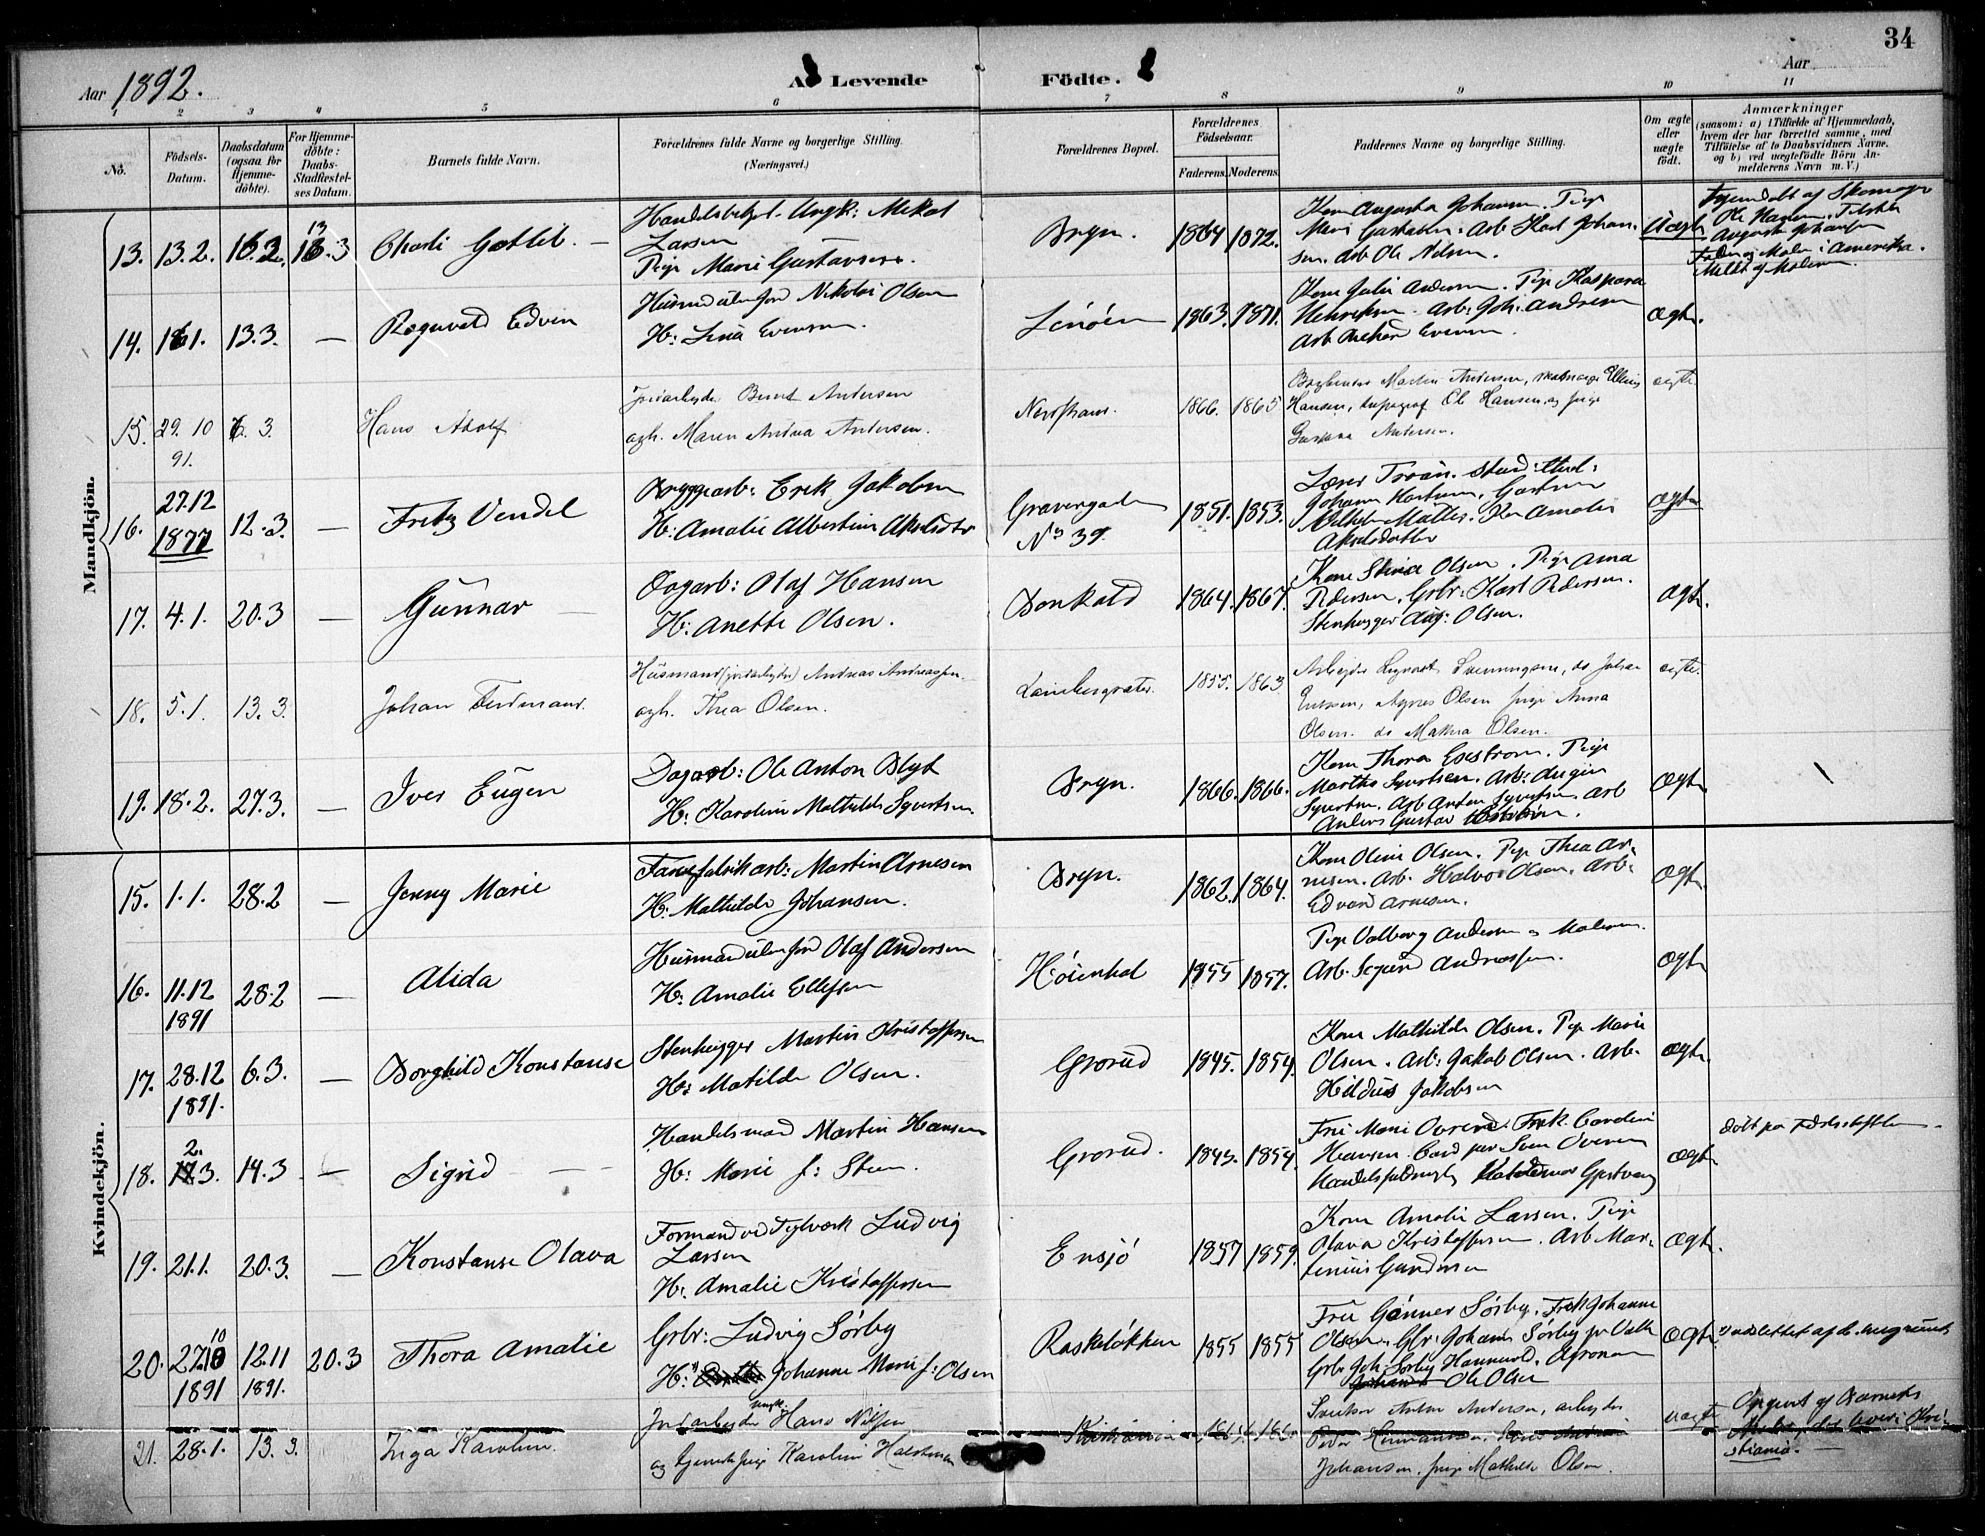 34
Aar 1892.
A. Levende Födte.
Aar
1 2 3 4 5 6 7 8 9 10 11
No.
Födsels-Datum.
Daabsdatum (ogsaa for Hjemme-döbte).
For Hjemme-döbte: Daabs-Stadfæstel-ses Datum.
Barnets fulde Navn.
Forældrenes fulde Navne og borgerlige Stilling. (Næringsvei.)
Forældrenes Bopæl.
Forældrenes Födselsaar.
Faderens. Moderens.
Faddernes Navne og borgerlige Stilling.
Om ægte eller uægte födt.
Anmærkninger
(saasom: a) i Tilfælde af Hjemmedaab,
hvem der har forrettet samme, med
Tilföielse af to Daabsvidners Navne,
og b) ved uægtefödte Börn An-
melderens Navn m. V.)
Mandkjön.
13. 13.2. 16.2. 13.3 Charli Gottlib.
Larsen
Pige Marie Gustavsen.
Bryn. 1864 1872.
Kone Augusta Johansen. Pige
Marie Gustavsen. Arb. Karl Johan-
sen. Arb Ole Nilsen.
Uægte
Hjemdøbt af Skomager
Ole Hansen.
Augusta Johansen
Fader og Moder i Amerika.
Meldt af Moderen.
14. 1.1. 13.3. — Ragnvald Edvin
Husmd uden jord Nikolai Olsen
H: Lina Evensen.
1863. 1871.
Henriksen. Arb: Joh. Andresen
Ægte.
15. 29. 10 91. 6. 3. Hans Adolf
Jordarbeider Bernt Andersen
ogh. Maren Andrea Andersen.
1866. 1865
Martin Andersen,
Hansen, typograf Ole Hansen, og pige
Andersen.
ægte
16. 27.12 1877 12.3. — Fritz Vendel
Bryggearb: Erik Jakobsen
H: Amalie Albertine Akseldtr
Gravergaden
No 39.
1851. 1853.
Lærer Stud:
Johann
Amalie
Akselsdatter
Ægte
17. 4.1. 20.3 — Gunnar —
Dagarb: Olaf Hansen
H: Anette Olsen.
1864. 1867.
Kone Stina Olsen. Pige Anna
Pedersen. Grbr: Karl Pedersen.
Stenhugger Aug: Olsen.
Ægte.
18. 5.1. 13. 3. Johan Ferdinand.
Husmand (jordarbeider) Andreas Andreassen.
ogh. Thea Olsen.
1855. 1863.
Arbeider Svenningsen, do Johan
Agnes Olsen pige Anna
Olsen. do Olsen.
ægte.
19. 18.2. 27.3. — Iver Eugen
Dagarb: Ole Anton Blyt
H: Karoline Mathilde Syvertsen.
Bryn. 1866. 1866.
Kone Thora Pige
Martha Syvertsen. Arb:
Syvertsen. Arb Anton Syvertsen. Arb
Anders Gustav
Ægte.
Kvindekjön.
15. 1.1. 28.2 — Jenny Marie
arb: Martin Arnesen
H: Mathilde Johansen.
Bryn. 1862. 1864.
Kone Oline Olsen. Pige Thea Ar-
nesen. Arb. Halvor Olsen. Arb.
Edvard Arnesen.
Ægte.
16. 11.12 1891 28.2 — Alida
Husmand uden jord Olaf Andersen
H: Amalie Ellefsen
Høienhal 1855 1857.
Pige Valborg Andersen og Moderen.
Arb. Sigurd Andreassen.
Ægte
17. 28.12 1891. 6.3. — Borghild Konstanse
Stenhugger Martin Kristoffersen
H: Matilde Olsen.
Grorud 1845. 1854.
Kone Mathilde Olsen. Pige Marie
Olsen. Arb: Jakob Olsen. Arb.
Jakobsen
Ægte.
18. 2.3. 14.3 — Sigrid —
Handelsmand Martin Hansen
H: Marie f: Steen.
Grorud. 1845. 1854.
Fru Marie Frøk. Caroline
Hansen. Cand
Ægte.
døbt paa
19. 21.1. 20.3. — Konstanse Olava
Formand ved Teglværk Ludvig
Larsen
H: Amalie Kristoffersen
Ensjö 1857 1859.
Kone Amalie Larsen. Pige
Olava Kristoffersen. Arb Mar-
tinius Gundersen
Ægte.
20. 27.10 1891 12.11 1891. 20.3 Thora Amalie
Grbr: Ludvig Sørby
H: Johanne Marie f: Olsen
1855 1855
Fru Gunner Sørby. Frøk Johanne
Olsen. Gbr: Johans Sørby
Grbr Joh: Sørby Agronom
Ole Olsen
Ægte.
21. 28.1. 13. 3. Inga Karoline.
Jordarbeider ungk. Hans Nilsen
og tjenestepige Karoline
Kristiania
Anton Andersen, arbeider
Peder Hermansen,
Johansen, pige Mathilde Olsen.
uægte
Opgivet af Barnets
Moder, der bor i Kri-
stiania. —